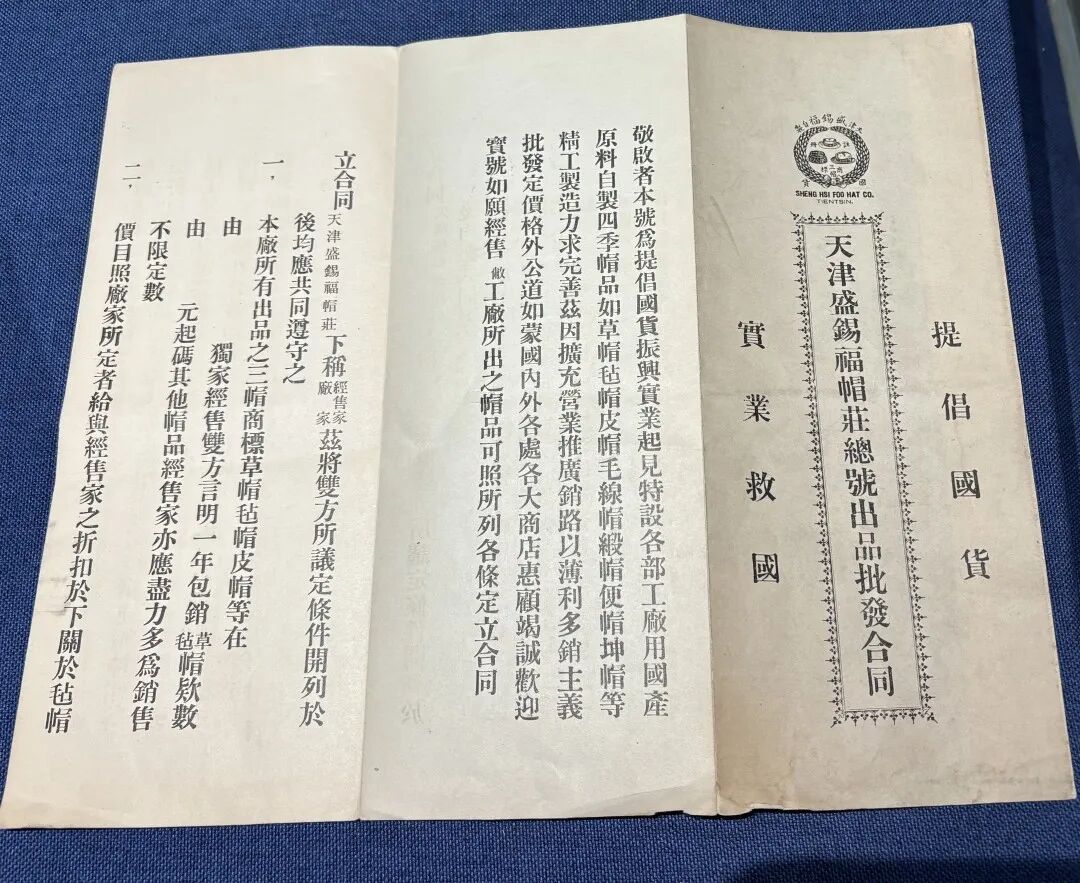 提倡國貨
天津盛錫福自製
註冊
三帽商標
國貨
SHENG HSI FOO HAT CO.
TIENTSIN.
天津盛錫福帽莊總號出品批發合同
實業救國
敬啟者本號爲提倡國貨振興實業起見特設各部工廠用國產
原料自製四季帽品如草帽毡帽皮帽毛線帽緞帽便帽坤帽等
精工製造力求完善茲因擴充營業推廣銷路以薄利多銷主義
批發定價格外公道如蒙國內外各處各大商店惠顧竭誠歡迎
寶號如願經售敝工廠所出之帽品可照所列各條定立合同
立合同天津盛錫福帽莊下稱經售家廠家茲將雙方所議定條件開列於
後均應共同遵守之
一，本廠所有出品之三帽商標草帽毡帽皮帽等在
由 獨家經售雙方言明一年包銷草毡帽欵數
由 元起碼其他帽品經售家亦應盡力多爲銷售
不限定數
二，價目照廠家所定者給與經售家之折扣於下關於毡帽